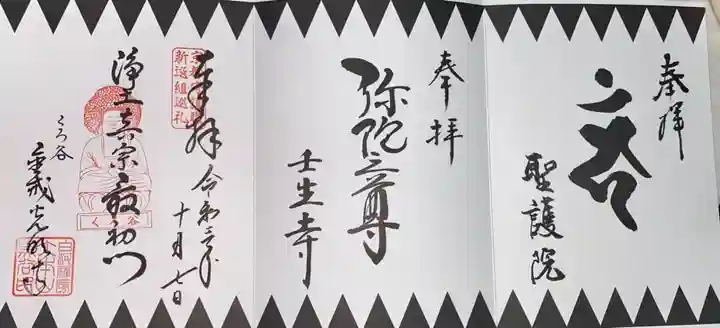 奉拝
聖護院
奉拝
弥陀之尊
壬生寺
新選組巡礼
奉拝
令和三年
十月七日
浄土真宗最初門
くろ谷
金戒光明寺
く谷